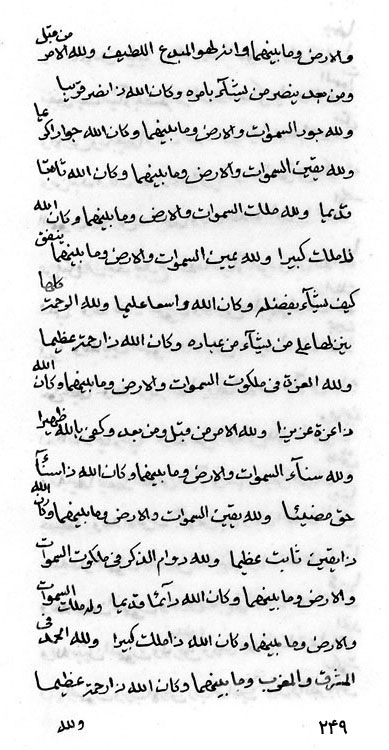 والارض وما بينهما وانه لهو المبدع اللطيف ولله الامر من قبل
ومن بعد ينصر من يشآء بامره وكان الله ذا نصر قريبا
ولله جود السموات والارض وما بينهما وكان الله جوادا كريما
ولله يقين السموات والارض وما بينهما وكان الله ثابتا
قديما ولله ملك السموات والارض وما بينهما وكان الله
ذا ملك كبيرا ولله يمين السموات والارض وما بينهما ينفق
كيف يشآء بفضله وكان الله واسعا عليما ولله الرحمة كلها
ينزلها على من يشآء من عباده وكان الله ذا رحمة عظيما
ولله العزة في ملكوت السموات والارض وما بينهما وكان الله
ذا عزة عزيزا ولله الامر من قبل ومن بعد وكفى بالله ظهيرا
ولله سنآء السموات والارض وما بينهما وكان الله ذا سنآء
حق مضيئا ولله يقين السموات والارض وما بينهما وكان الله
ذا يقين ثابت عظيما ولله دوام الذكر في ملكوت السموات
والارض وما بينهما وكان الله دآئما قديما وله ملك السموات
والارض وما بينهما وكان الله ذا ملك كبيرا ولله الحمد في
المشرق والمغرب وما بينهما وكان الله ذا رحمة عظيما
ولله
٢٤٩